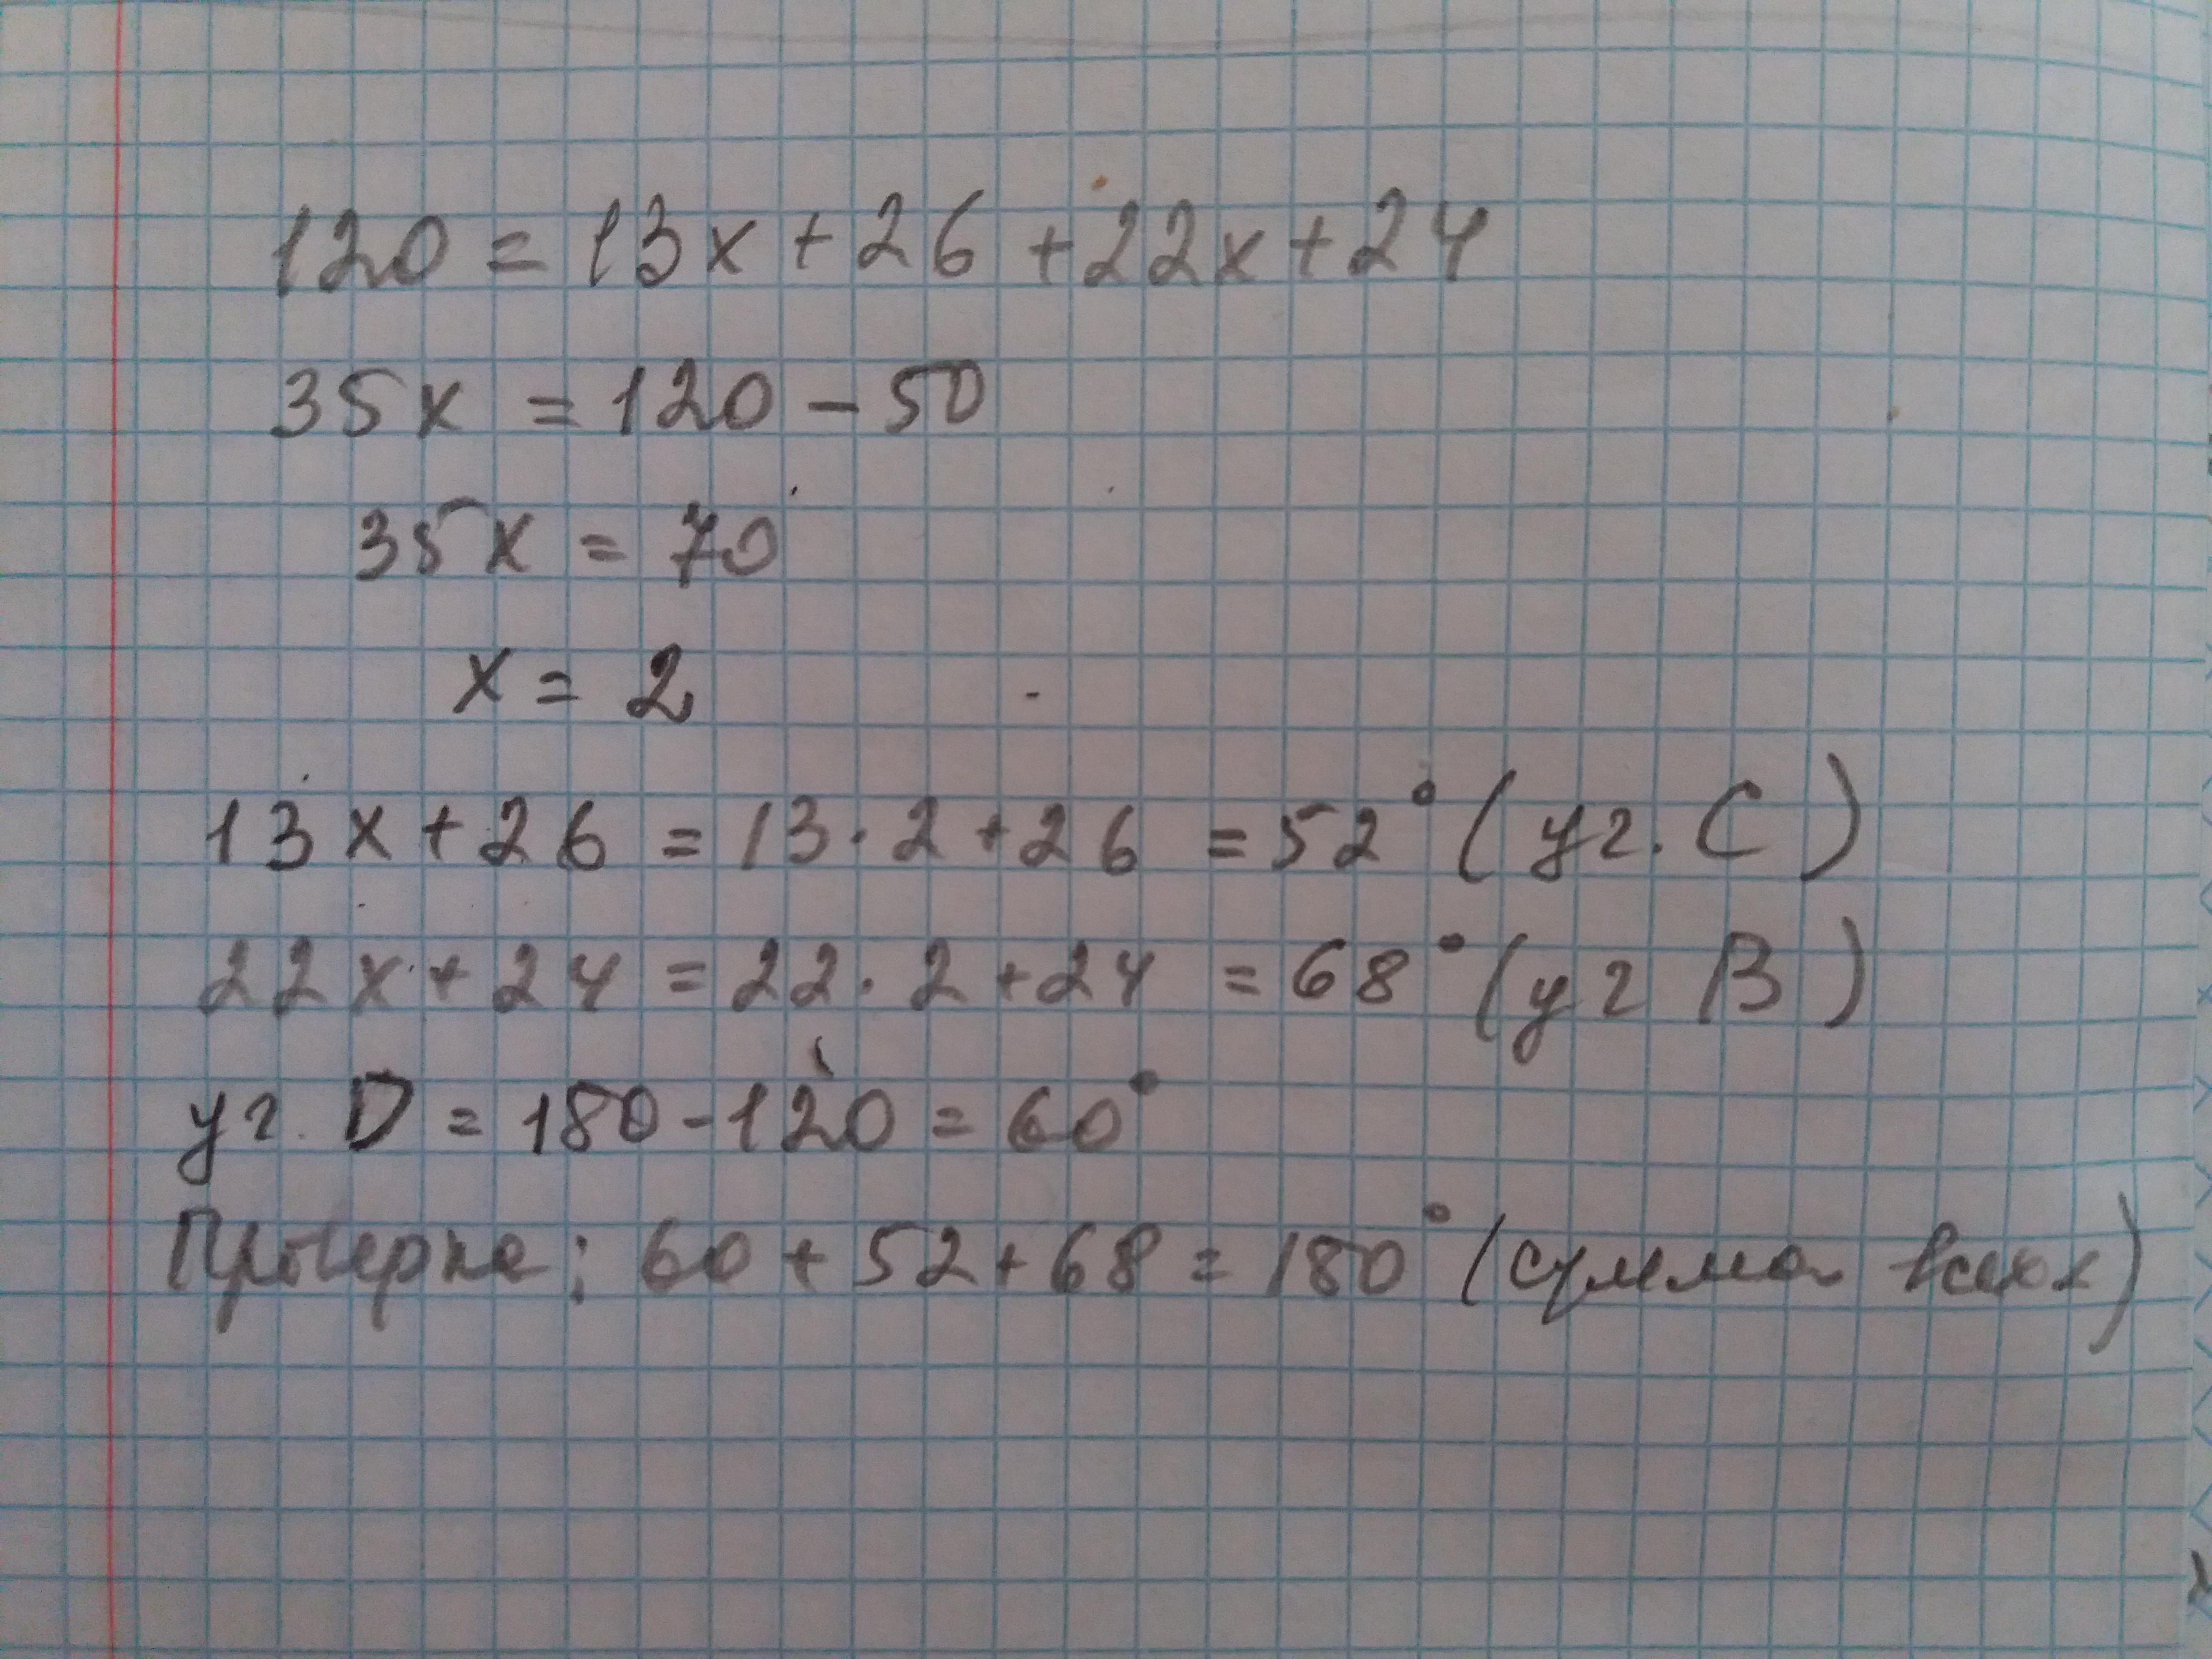 120 = 13x + 26 + 22x + 24
35x = 120 - 50
35x = 70
x = 2
13x + 26 = 13 · 2 + 26 = 52° (уг. C)
22x + 24 = 22 · 2 + 24 = 68° (уг B)
уг. D = 180 - 120 = 60°
Проверка: 60 + 52 + 68 = 180° (сумма всех)